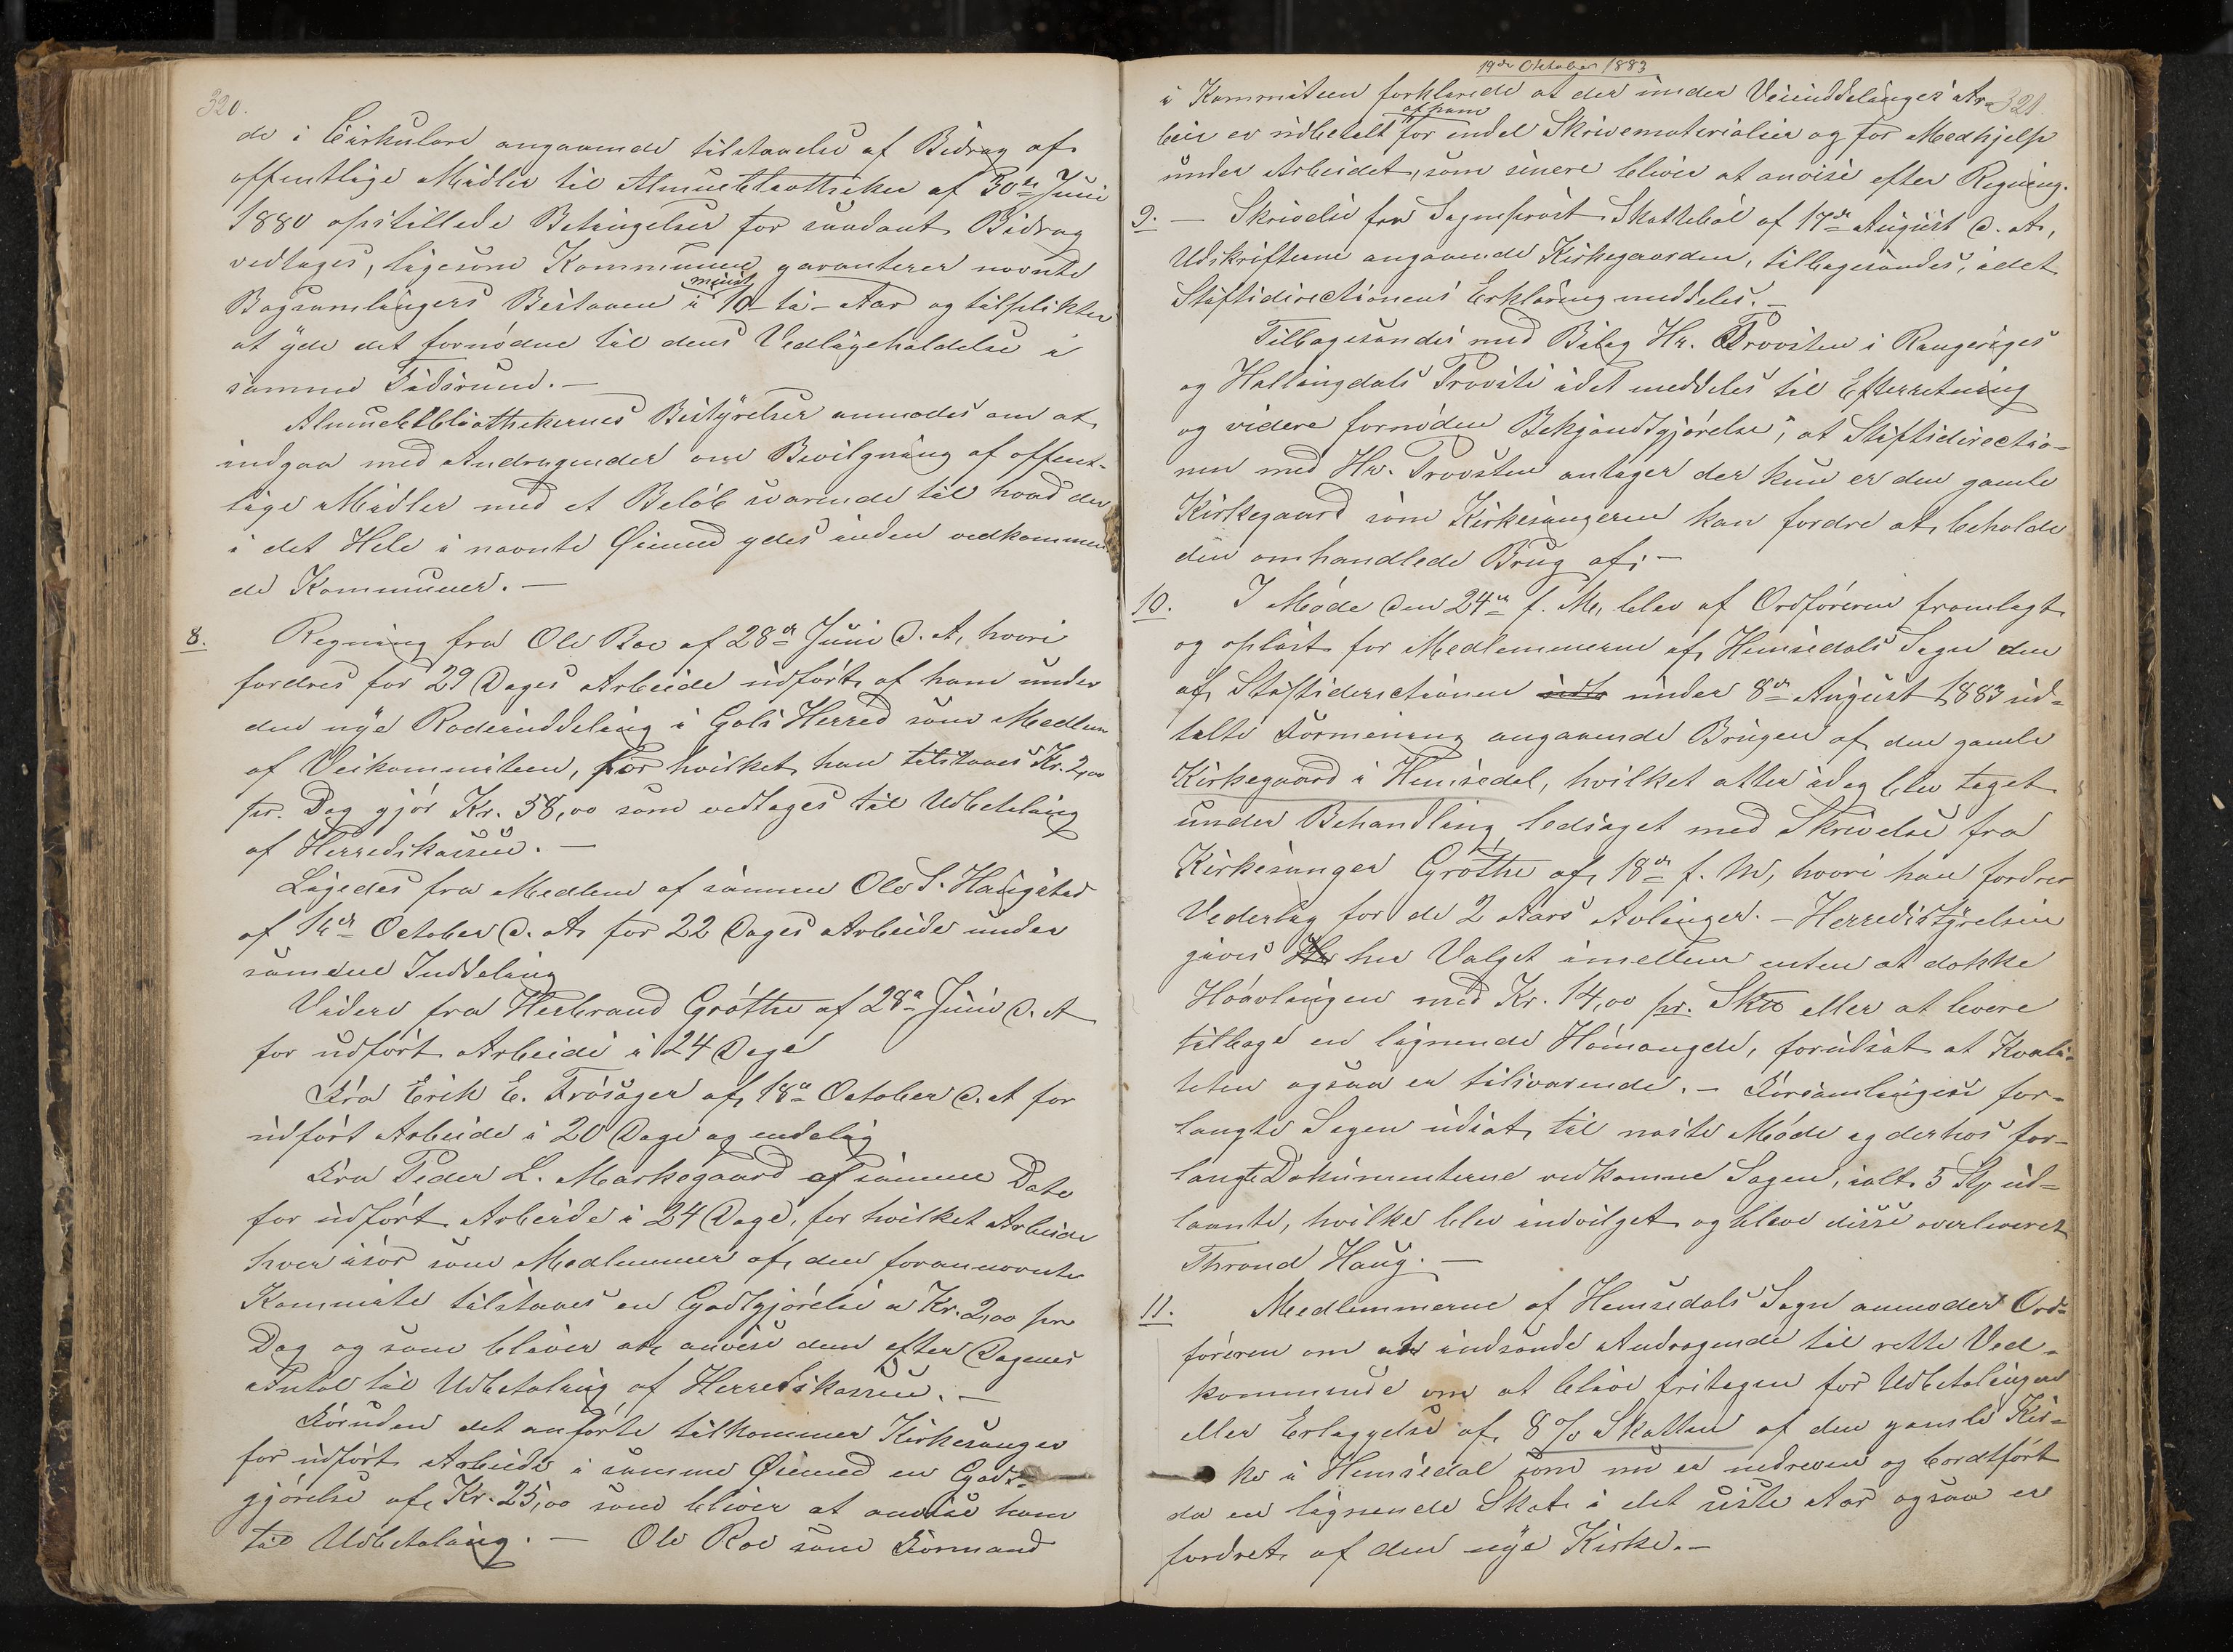 320.
de i Cirkulære angaaende tilstaaelse af Bidrag af
offentlige Midler til Almuebibliotheker af 30te Juni
1880 opstillede Betingelser for saadant Bidrag
vedtages, ligesom Kommunen garanterer nævnte
Bogsamlingers Bestaaen i mindst 10 - ti - Aar og tilpligter
at yde det fornødne til dens Vedligeholdelse i
samme Tidsrum. —
Almuebibliothekernes Bestyrelser anmodes om at
indgaa med Andragender om Bevilgning af offent-
lige Midler med et Beløb svarende til hvad der
i det Hele i nævnte Øiemed ydes inden vedkommen-
de Kommuner. —
8. Regning fra Ole Roe af 28de Juni d. A, hvori
fordres for 29 Dages Arbeide udført af ham under
den nye Rodeinddeling i Gols Herred som Medlem
af Veikommiteen, for hvilket han tilstaaes Kr. 2,00
pr. Dag gjør Kr. 58,00 som vedtages til Udbetaling
af Herredskassen. —
Ligedes fra Medlem af samme Ole S. Haugstad
af 1ste October d. A. for 22 Dages Arbeide under
samme Inddeling
Videre fra Herbrand Grøthe af 28de Juni d. A
for udført Arbeide i 24 Dage
Fra Erik E. Trøsager af 18de October d. A for
udført Arbeide i 20 Dage og endelig
Fra Peder L. Markegaard af samme Dato
for udført Arbeide i 24 Dage, for hvilket Arbeide
hver især som Medlemmer af den forannævnte
Kommite tilstaaes en Godtgjørelse a Kr. 2,00 pr
Dag og som bliver at anvise dem efter Dagenes
Antal til Udbetaling af Herredskassen. —
Foruden det anførte tilkommer Kirkesanger
for udført Arbeide i samme Øiemed en Godt-
gjørelse af Kr. 25,00 som bliver at anvise ham
til Udbetaling. — Ole Roe som Formand
19de Oktober 1883
321.
i Kommiteen forklarede at der under Veiinddelinges Ar-
beie er udbetalt af ham for endel Skrivematerialier og for Medhjelp
under Arbeidet, som senere bliver at anvise efter Regning.
9. — Skrivelse fra Sogneprest Skattebøl af 17de August d. A,
Udskrifterne angaaende Kirkegaarden, tilbagesendes, idet
Stiftsdirectionens Erklæring meddeles. —
Tilbagesendes med Bilag Hr. Provsten i Ringeriges
og Hallingdals Provsti idet meddeles til Efterretning
og videre fornøden Bekjendtgjørelse, at Stiftsdirectio-
nen med Hr. Provsten antager der kun er den gamle
Kirkegaard som Kirkesangeren kan fordre at beholde
den omhandlede Brug af; —
10. I Møde den 24de f. M, blev af Ordføreren fremlagt
og oplæst for Medlemmerne af Hemsedals Sogn den
af Stiftsdirectionen under 8de August 1883 ud-
talte Formening angaaende Brugen af den gamle
Kirkegaard i Hemsedal, hvilket atter idag blev taget
under Behandling ledsaget med Skrivelse fra
Kirkesanger Grøthe af 18de f. M, hvori han fordrer
Vederlag for de 2 Aars Avlinger. — Herredsstyrelsen
gives her Valget imellem enten at dække
Høavlingen med Kr. 14,00 pr. Sktt eller at levere
tilbage en lignende Hømængde, forudsat at Kvali-
teten ogsaa er tilsvarende. — Forsamlingen for-
langte Sagen udsat til næste Møde og derhos for-
langte Dokumenterne vedkomne Sagen, ialt 5 Stk ud-
laante, hvilke blev indvilget og bleve disse overleveret
Thrond Haug. —
11. Medlemmerne af Hemsedals Sogn anmoder Ord-
føreren om at indsende Andragende til rette Ved-
kommende om at blive fritagen for Udbetalingen
eller Erlæggelse af 8% Skatten af den gamle Kir-
ke i Hemsedal som nu er nedreven og bordtført
da en lignende Skat i det siste Aar ogsaa er
fordret af den nye Kirke. —